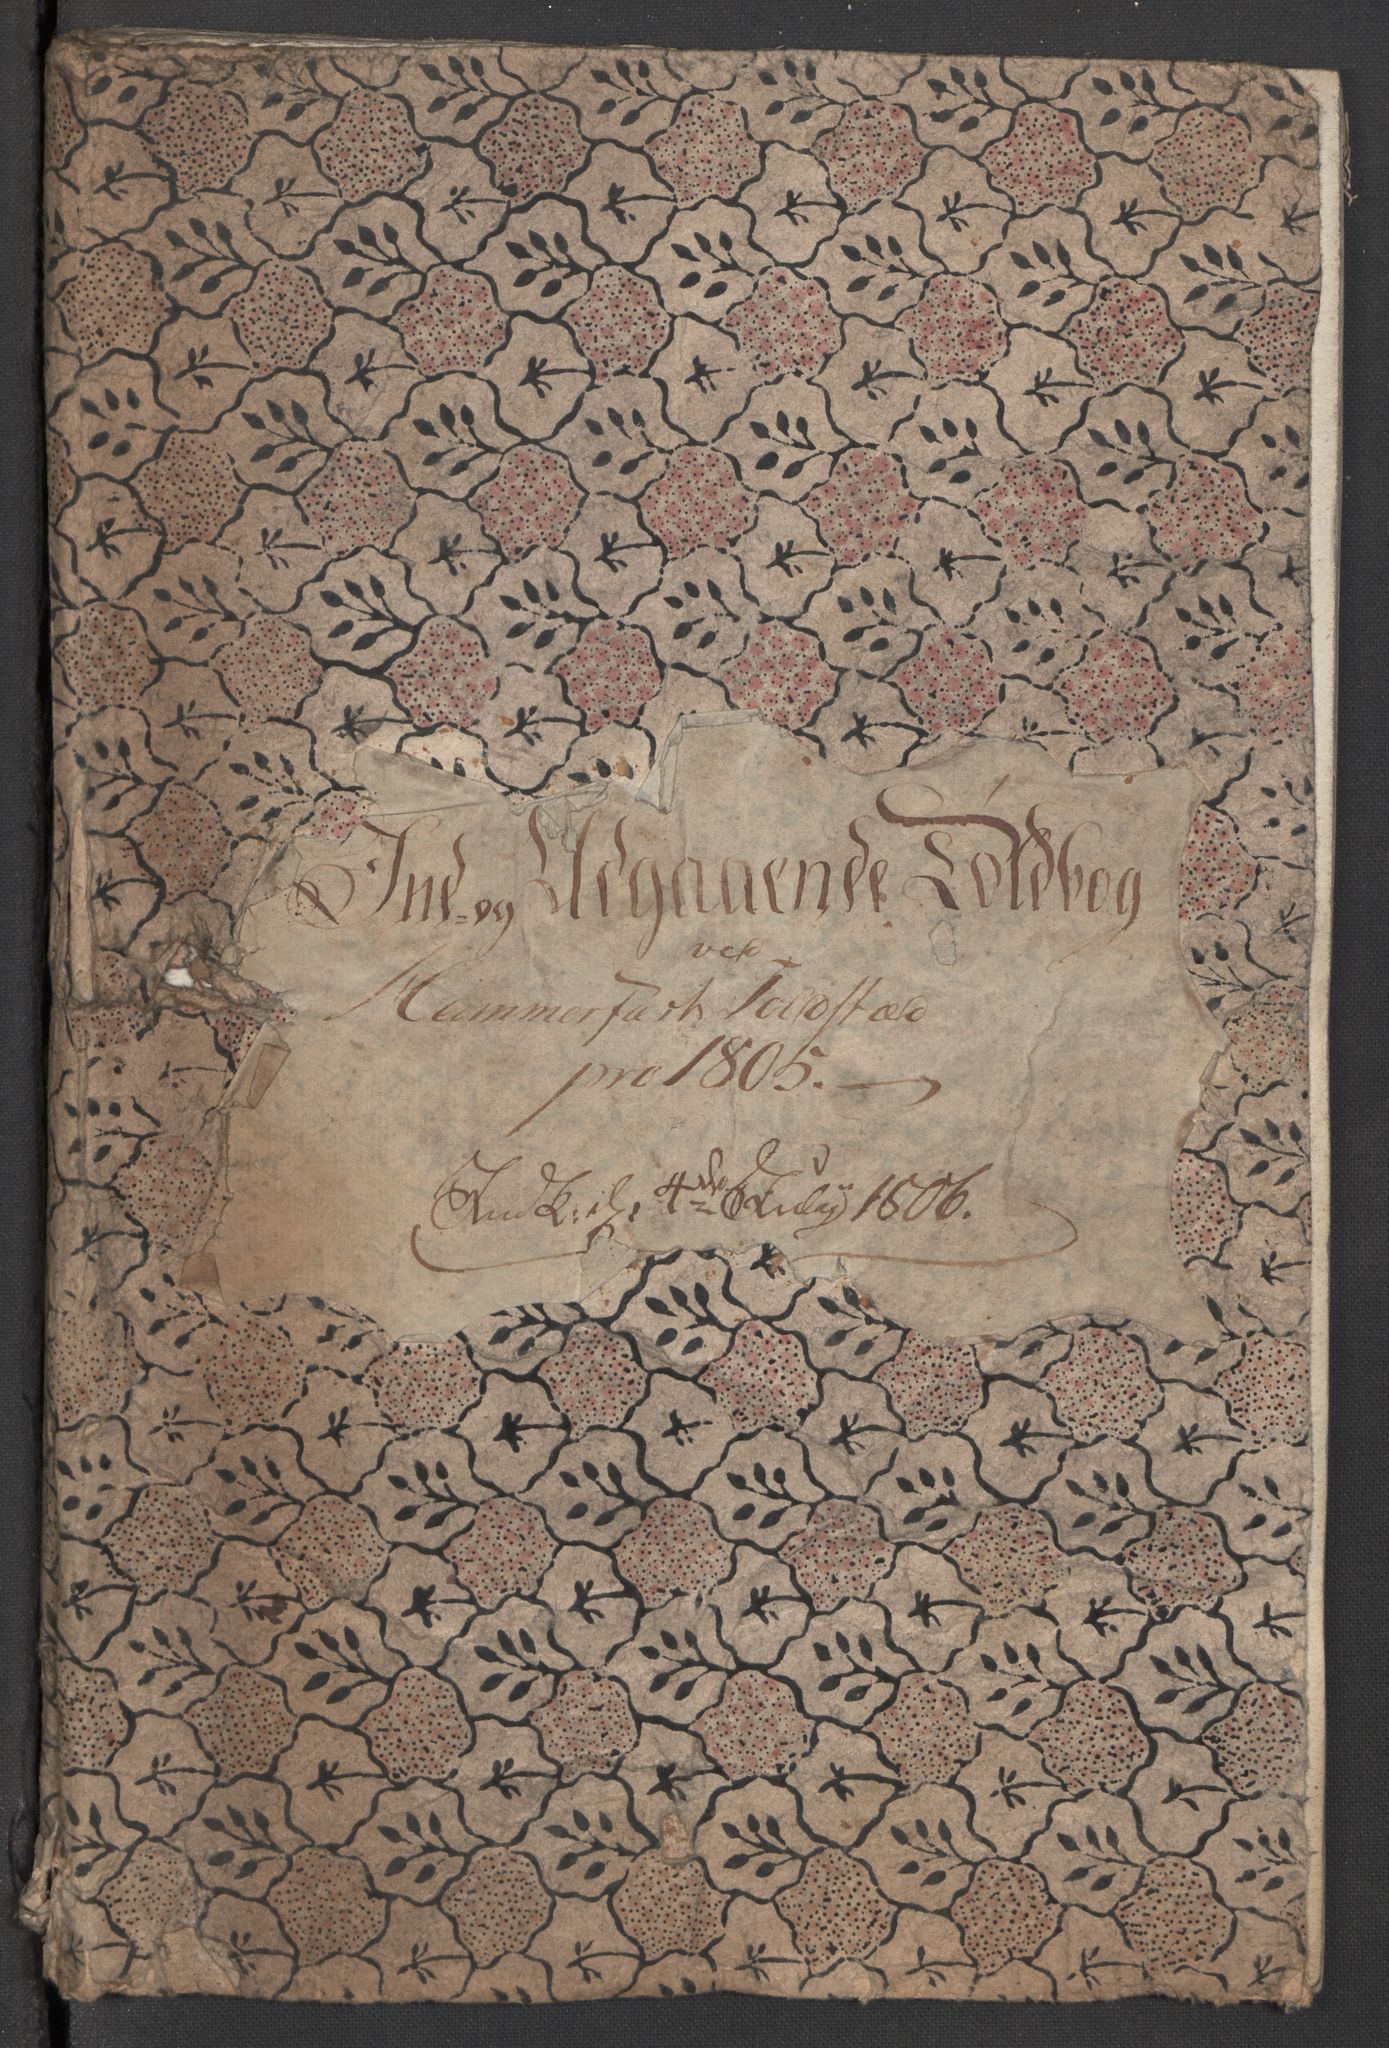 Ind- og Udgaaende Toldbog
ved
Hammerfest Toldsted
pro 1805.
4de July 1806.